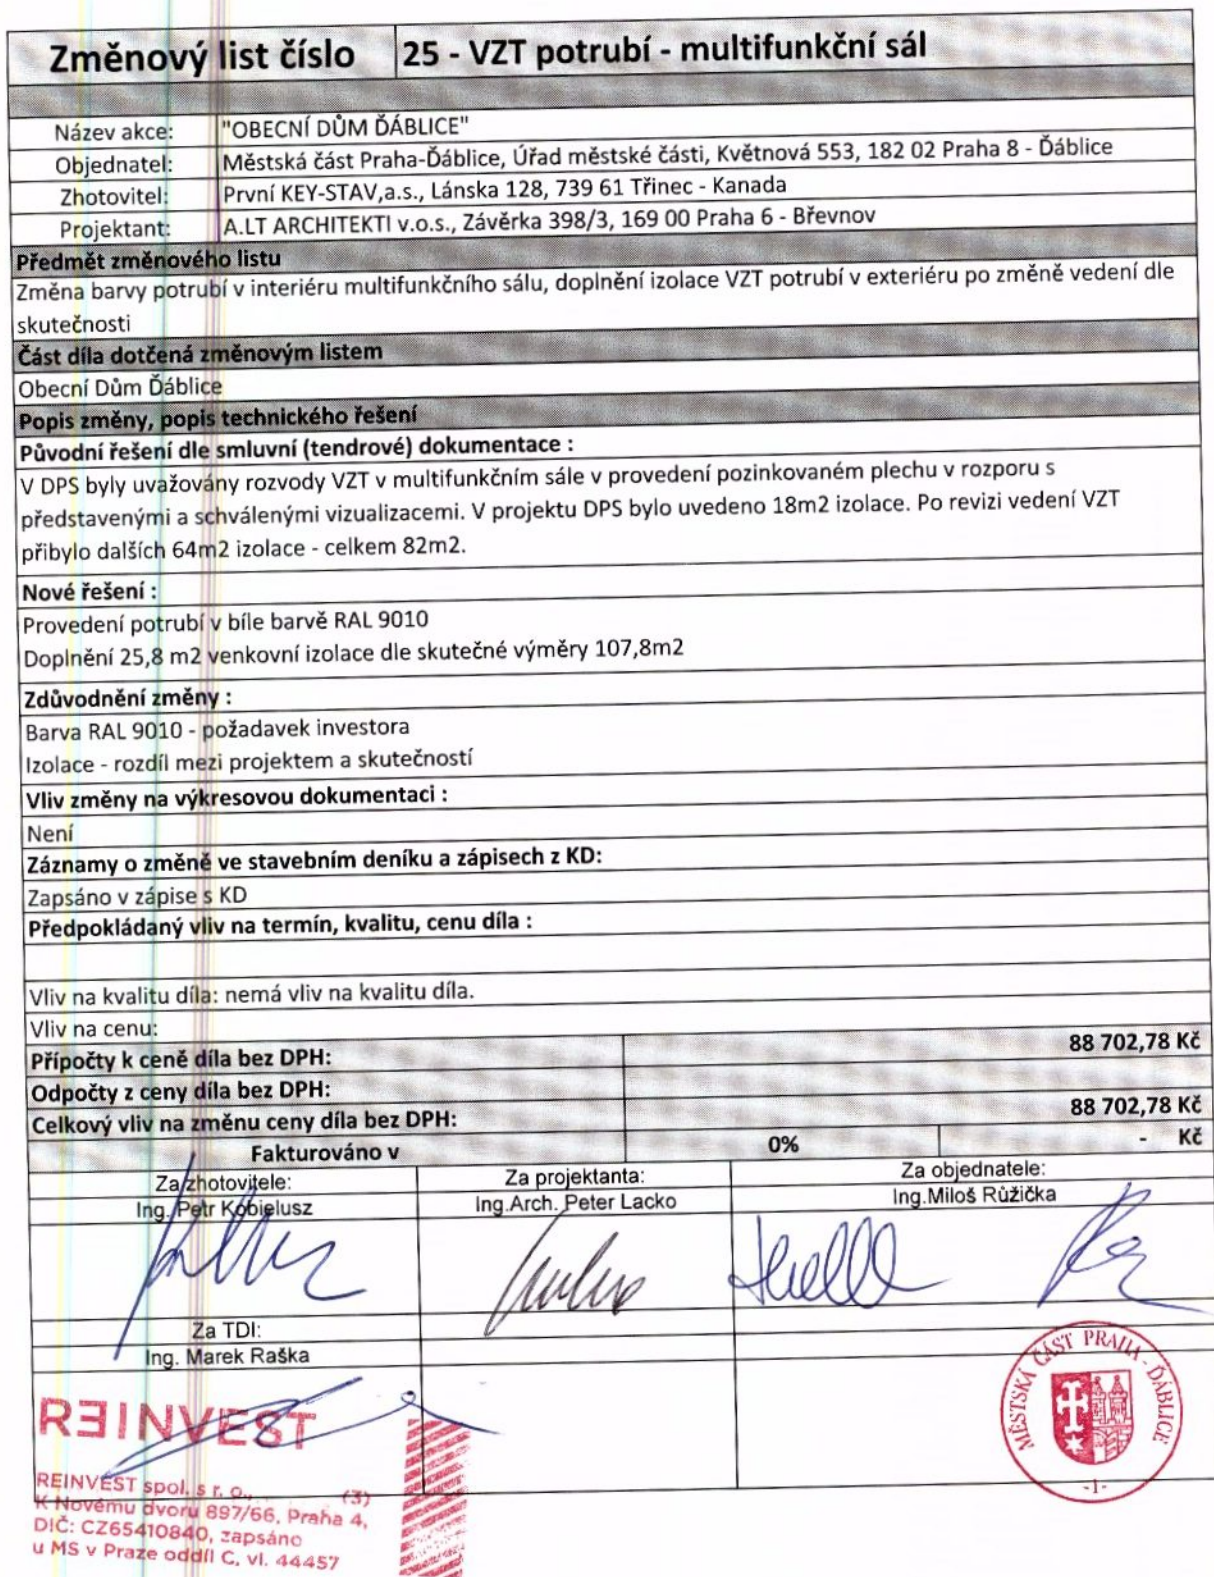 Změnový list číslo 25 - VZT potrubí - multifunkční sál
Název akce: "OBECNÍ DŮM ĎÁBLICE"
Objednatel: Městská část Praha-Ďáblice, Úřad městské části, Květnová 553, 182 02 Praha 8 - Ďáblice
Zhotovitel: První KEY-STAV,a.s., Lánska 128, 739 61 Třinec - Kanada
Projektant: A.LT ARCHITEKTI v.o.s., Závěrka 398/3, 169 00 Praha 6 - Břevnov
Předmět změnového listu
Změna barvy potrubí v interiéru multifunkčního sálu, doplnění izolace VZT potrubí v exteriéru po změně vedení dle
skutečnosti
Část díla dotčená změnovým listem
Obecní Dům Ďáblice
Popis změny, popis technického řešení
Původní řešení dle smluvní (tendrové) dokumentace :
V DPS byly uvažovány rozvody VZT v multifunkčním sále v provedení pozinkovaném plechu v rozporu s
představenými a schválenými vizualizacemi. V projektu DPS bylo uvedeno 18m2 izolace. Po revizi vedení VZT
přibylo dalších 64m2 izolace - celkem 82m2.
Nové řešení :
Provedení potrubí v bíle barvě RAL 9010
Doplnění 25,8 m2 venkovní izolace dle skutečné výměry 107,8m2
Zdůvodnění změny :
Barva RAL 9010 - požadavek investora
Izolace - rozdíl mezi projektem a skutečností
Vliv změny na výkresovou dokumentaci :
Není
Záznamy o změně ve stavebním deníku a zápisech z KD:
Zapsáno v zápise s KD
Předpokládaný vliv na termín, kvalitu, cenu díla :
Vliv na kvalitu díla: nemá vliv na kvalitu díla.
Vliv na cenu:
Přípočty k ceně díla bez DPH: 88 702,78 Kč
Odpočty z ceny díla bez DPH:
Celkový vliv na změnu ceny díla bez DPH: 88 702,78 Kč
Fakturováno v 0% - Kč
Za zhotovitele: Za projektanta: Za objednatele:
Ing. Petr Kobielusz Ing.Arch. Peter Lacko Ing.Miloš Růžička
Za TDI:
Ing. Marek Raška
REINVEST
REINVEST spol. s r. o., (3)
K Novému dvoru 897/66, Praha 4,
DIČ: CZ65410840, zapsáno
u MS v Praze oddíl C, vl. 44457
MĚSTSKÁ ČÁST PRAHA - ĎÁBLICE
-1-